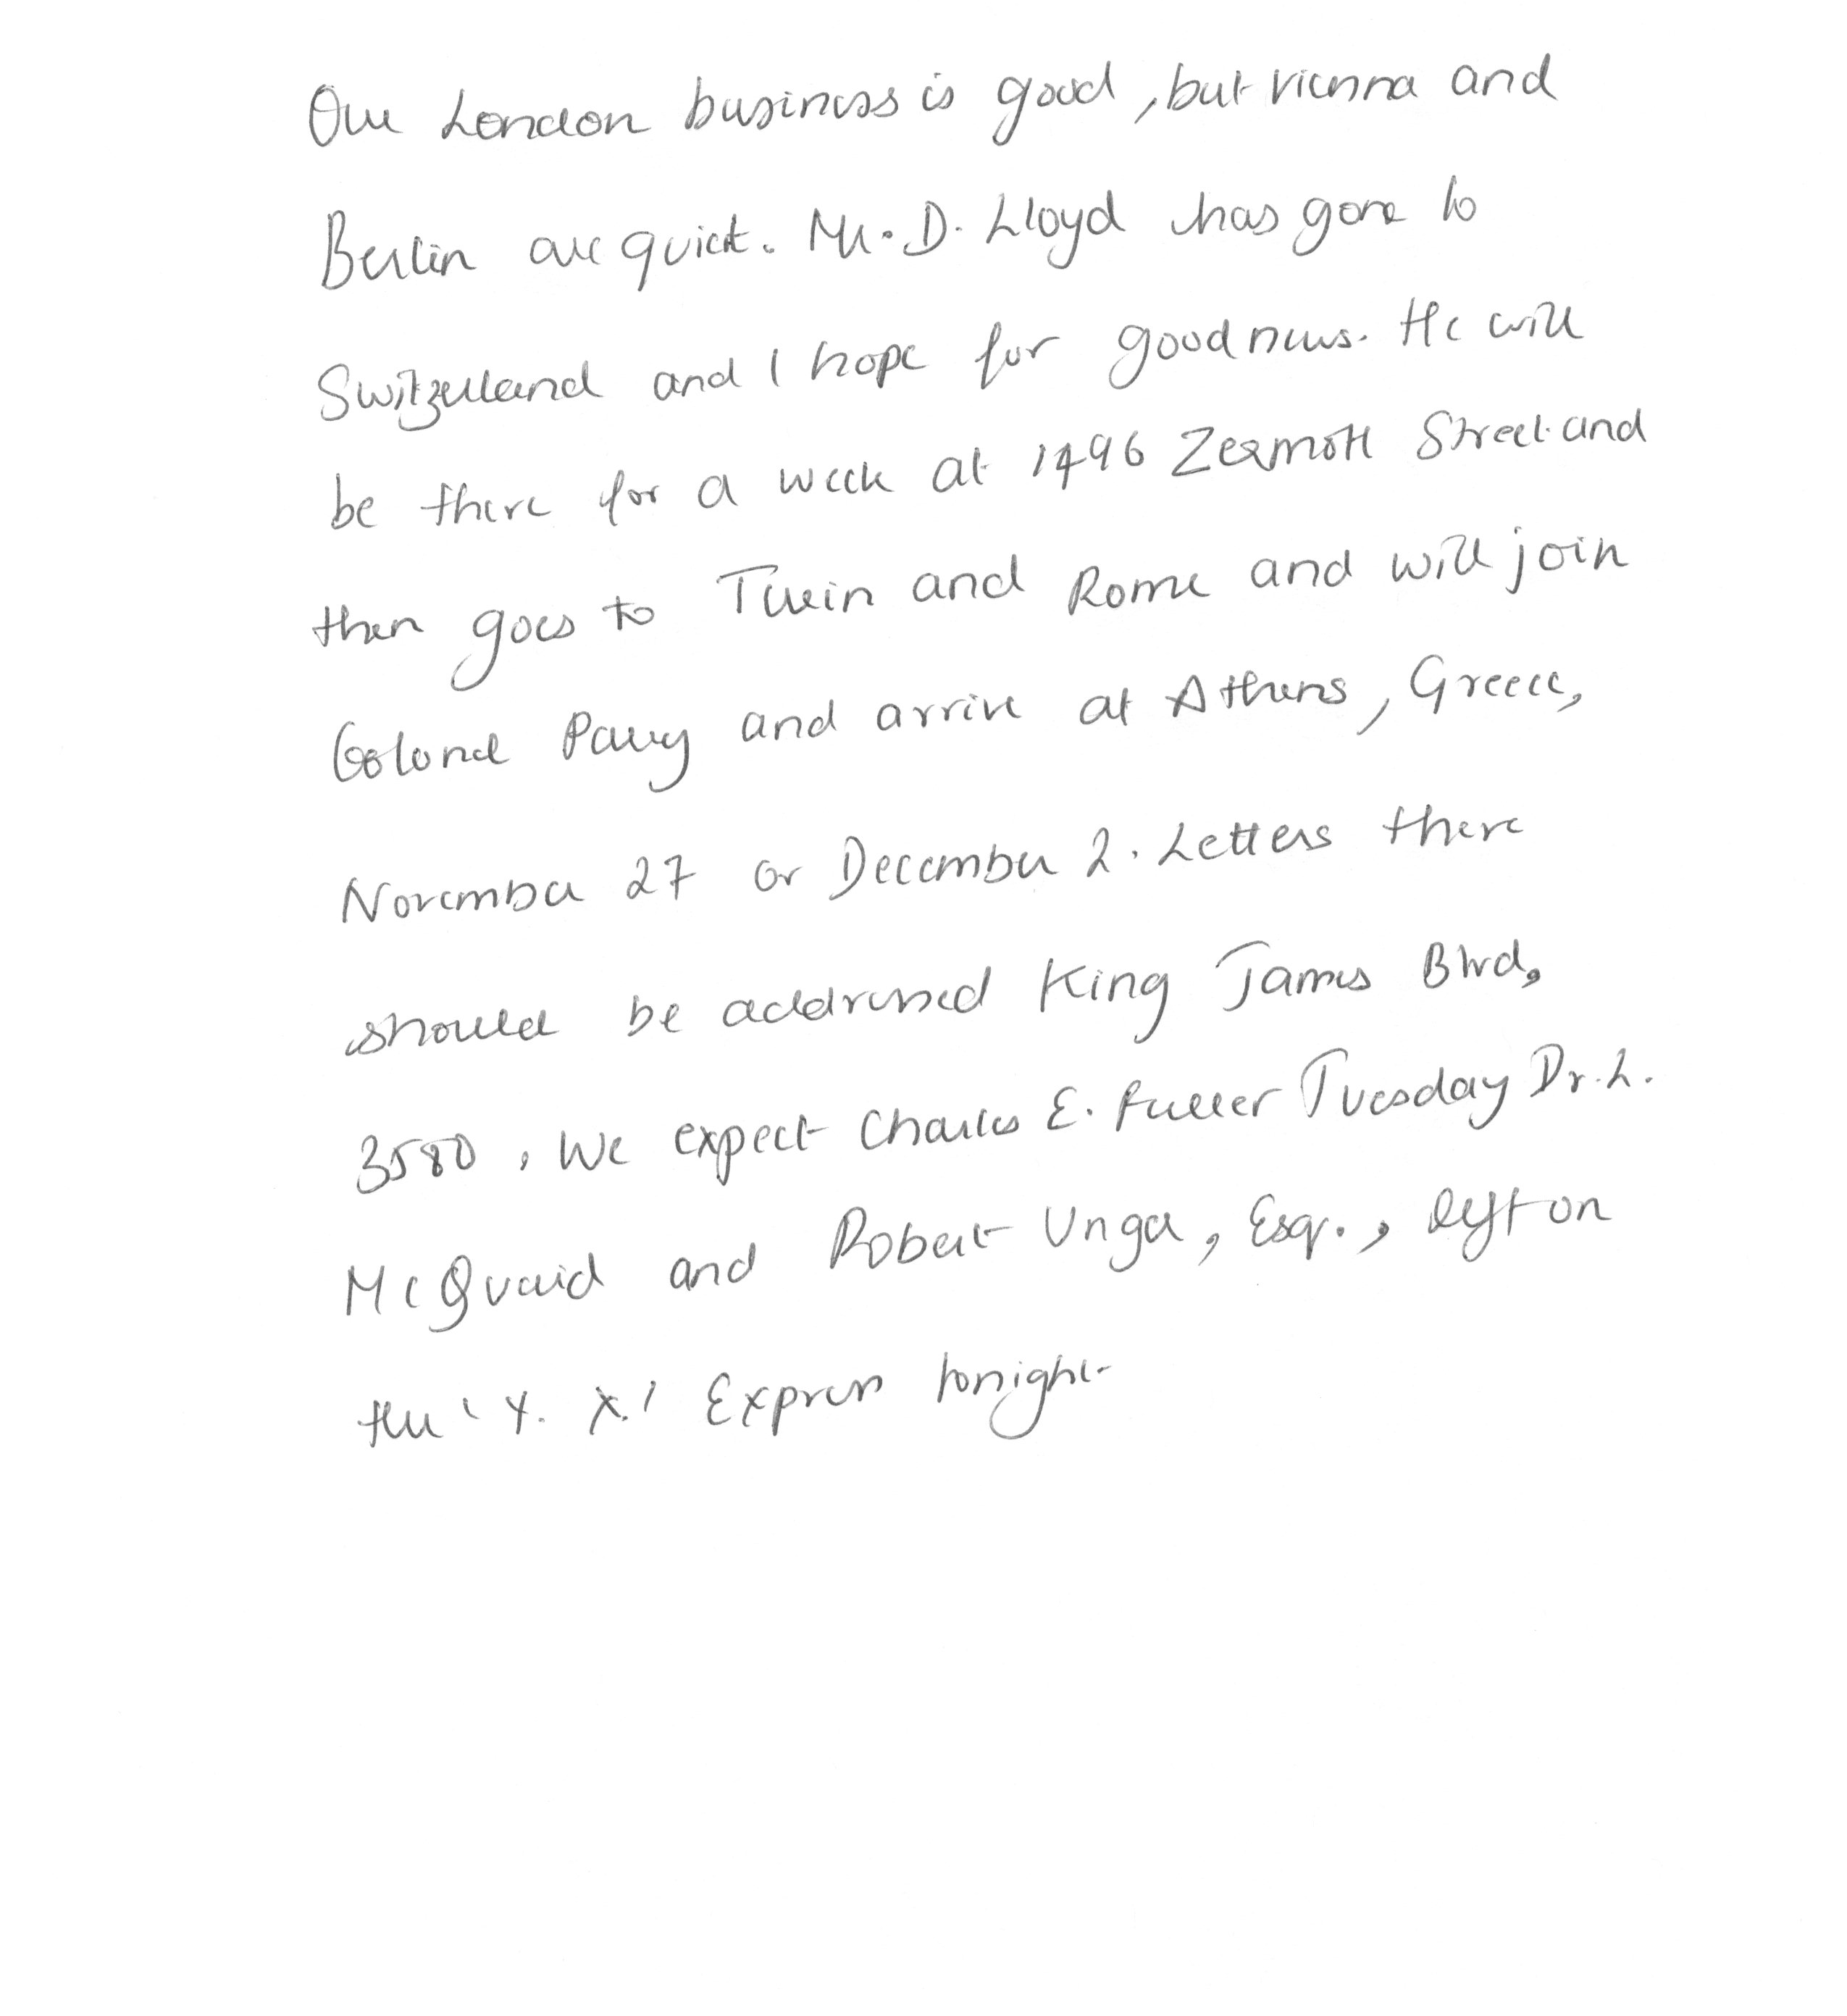 Our London business is good, but Vienna and
Berlin are quiet. Mr. D. Lloyd has gone to
Switzerland and I hope for good news. He will
be there for a week at 1496 Zermott Street and
then goes to Turin and Rome and will join
Colonel Parry and arrive at Athens, Greece,
November 27 or December 2. Letters there
should be addressed King James Blvd,
3580. We expect Charles E. Fuller Tuesday Dr. L.
McQuaid and Robert Unger, Esq., left on
the 'Y. X.' Express tonight